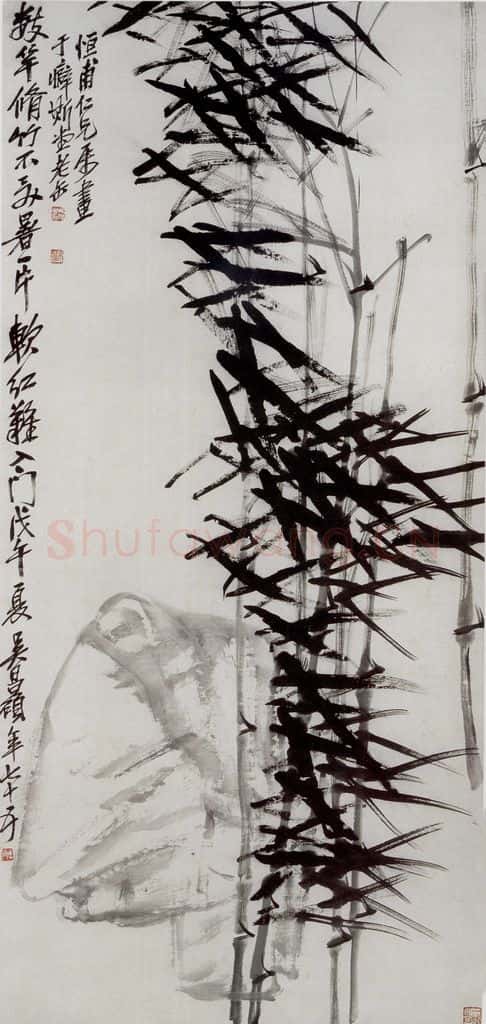 恒甫仁兄屬畫
于癖斯堂老缶
數竿脩竹不受暑一片軟紅難入門戊午夏吳昌碩年七十五
Shufawang.CN